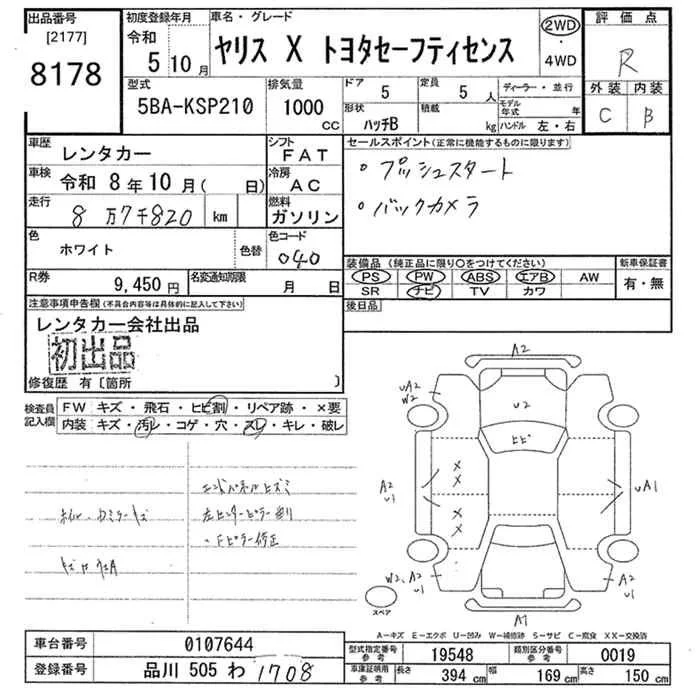 出品番号
[2177]
8178
初度登録年月
令和
5 10 月
車名・グレード
ヤリス X トヨタセーフティセンス
2WD
・
4WD
評価点
R
外装 内装
C B
型式
5BA-KSP210
排気量
1000
cc
ドア 5
形状 ハッチB
定員 5 人
積載 kg
ディーラー・並行
モデル年式 年
ハンドル 左・右
車歴 レンタカー
シフト FAT
車検 令和 8年10月( 日)
冷房 AC
走行 8万7千820 km
燃料 ガソリン
色 ホワイト
色替
色コード 040
R券 9,450円
名変通知期限 月 日
セールスポイント(正常に機能するものに限ります)
・プッシュスタート
・バックカメラ
装備品(純正品に限り○をつけてください)
PS PW ABS エアB AW
SR ナビ TV カワ
新車保証書
有・無
後日品
注意事項申告欄(不具合内容等は具体的に記入して下さい)
レンタカー会社出品
初出品
修復歴 有〔箇所 〕
検査員記入欄
FW キズ・飛石・ヒビ割・リペア跡・×要
内装 キズ・汚レ・コゲ・穴・スレ・キレ・破レ
エンドパネルヒズミ
左センターピラー
・Fピラー修正
A2
uA2
W2
U2
ヒビ
A2
u1
× × × ×
uA1
W2、A2
u1
A2
u1
A1
スペア
A-キズ E-エクボ U-凹み W-補修跡 S-サビ C-腐食 XX-交換済
車台番号 0107644
登録番号 品川 505 わ 1708
型式指定番号 参考 19548
類別区分番号 参考 0019
車庫証明用 参考 長さ 394 cm 幅 169 cm 高さ 150 cm